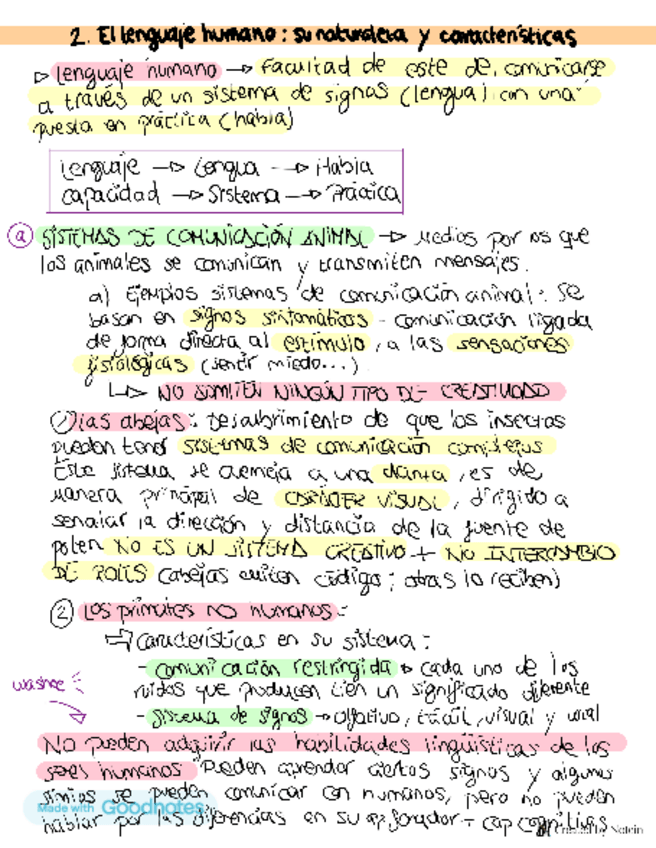 2. El lenguaje humano: su naturaleza y características
▷ lenguaje humano → Facultad de este de comunicarse
a través de un sistema de signos (lengua) con una
puesta en práctica (habla)
Lenguaje → Lengua → Habla
capacidad → Sistema → Práctica
a SISTEMAS DE COMUNICACIÓN ANIMAL → Medios por los que
los animales se comunican y transmiten mensajes.
a) Ejemplos sistemas de comunicación animal: Se
basan en signos sintomáticos - comunicación ligada
de forma directa al estímulo, a las sensaciones
fisiológicas (sentir miedo...)
↳ NO ADMITEN NINGÚN TIPO DE CREATIVIDAD
1 las abejas: Descubrimiento de que los insectos
pueden tener sistemas de comunicación complejos
Este sistema se asemeja a una danza, es de
manera principal de CARÁCTER VISUAL, dirigido a
señalar la dirección y distancia de la fuente de
polen NO ES UN SISTEMA CREATIVO + NO INTERCAMBIO
DE ROLES (abejas emiten código; otras lo reciben)
2 Los primates NO humanos:
⇒ características en su sistema:
- comunicación restringida → cada uno de los
ruidos que producen tien un significado diferente
- sistema de signos → olfativo, táctil, visual y vocal
washoe
NO pueden adquirir las habilidades lingüísticas de los
seres humanos Pueden aprender ciertos signos y algunos
simios se pueden comunicar con humanos, pero no pueden
hablar por las diferencias en su + cap cognitivas
Made with Goodnotes
Created by Notein